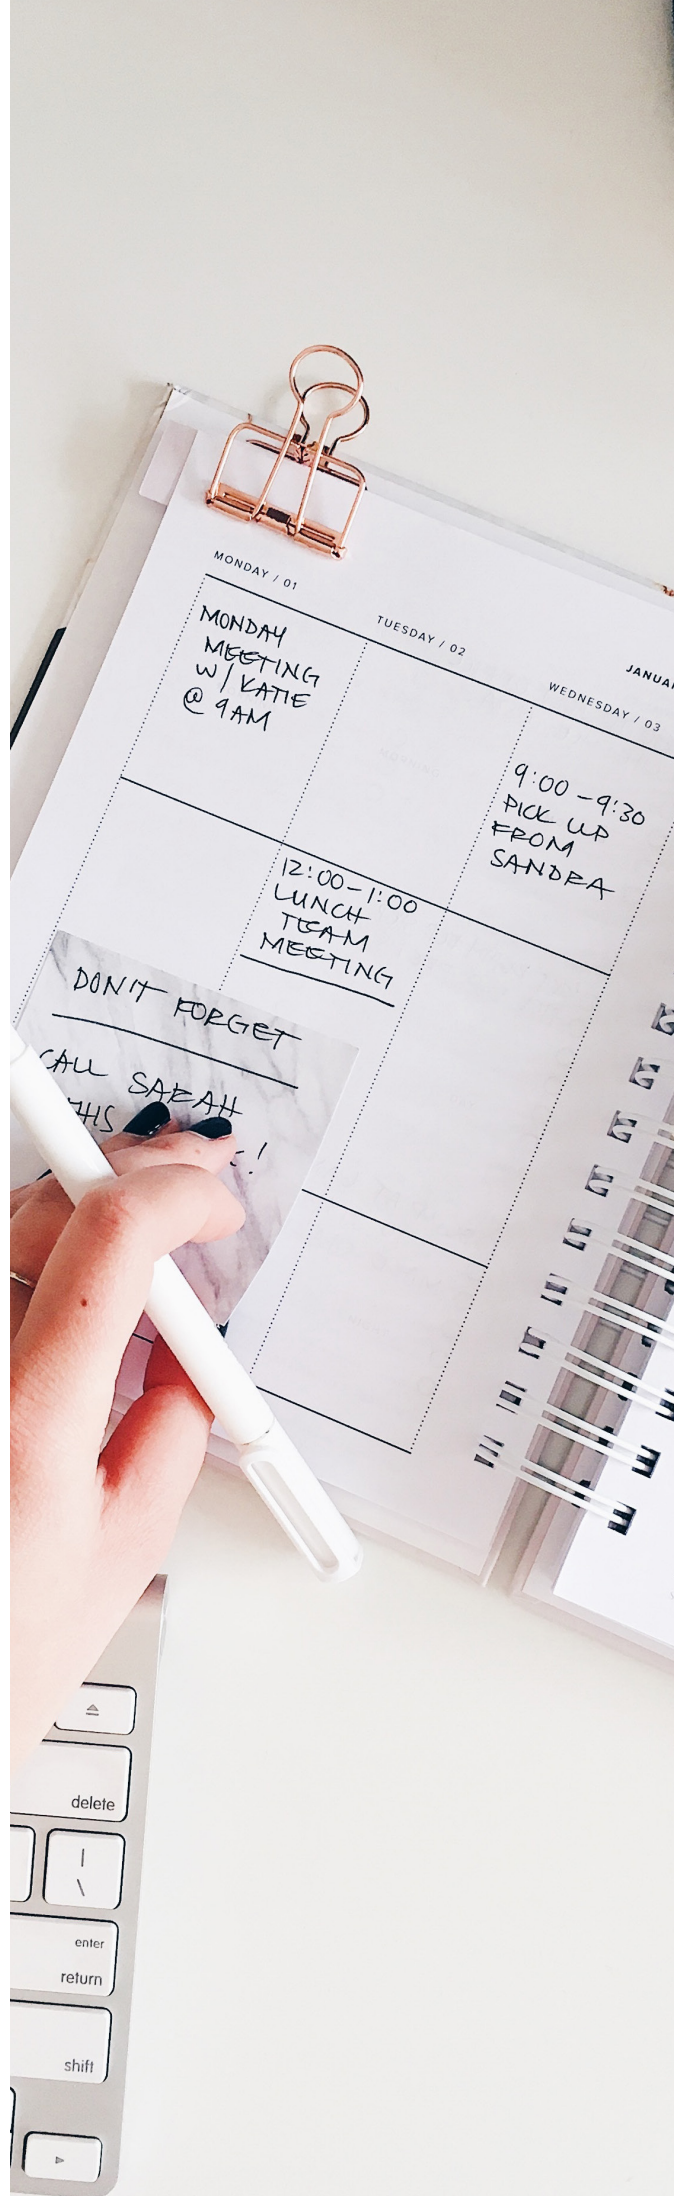 MONDAY / 01
TUESDAY / 02
WEDNESDAY / 03
MONDAY
MEETING
W/ KATIE
@ 9AM
MORNING
9:00 - 9:30
PICK UP
FROM
SANDRA
12:00 - 1:00
LUNCH
TEAM
MEETING
DON'T FORGET
CALL SARAH
THIS
!
delete
|
\
enter
return
shift